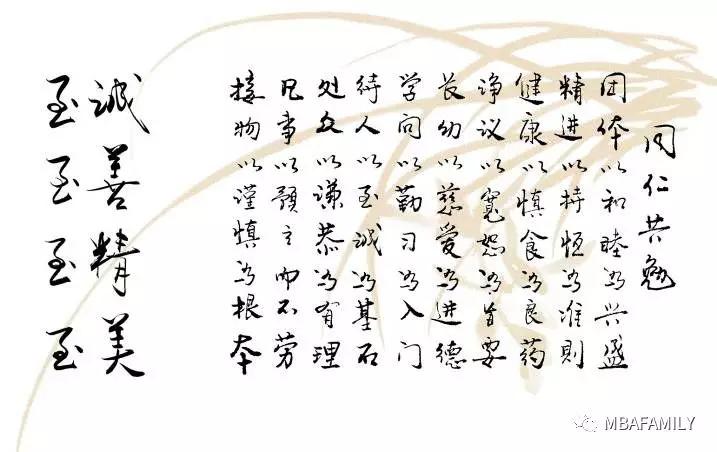 同仁共勉
团体以和睦为兴盛
精进以持恒为准則
健康以慎食为良药
诤议以寬恕为旨要
长幼以慈爱为进德
学问以勤习为入门
待人以至诚为基石
处众以谦恭为有理
凡事以預立而不劳
接物以谨慎为根本
至誠
至善
至精
至美
MBAFAMILY